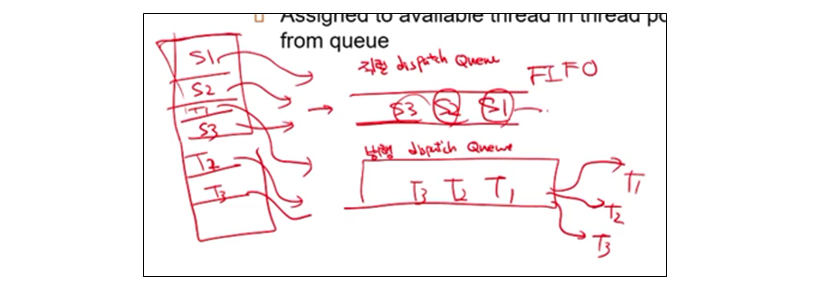 Assigned to available thread in thread po
from queue
S1
S2
T1
S3
T2
T3
직렬 dispatch Queue
FIFO
S3 S2 S1
병렬 dispatch Queue
T3 T2 T1
T1
T2
T3